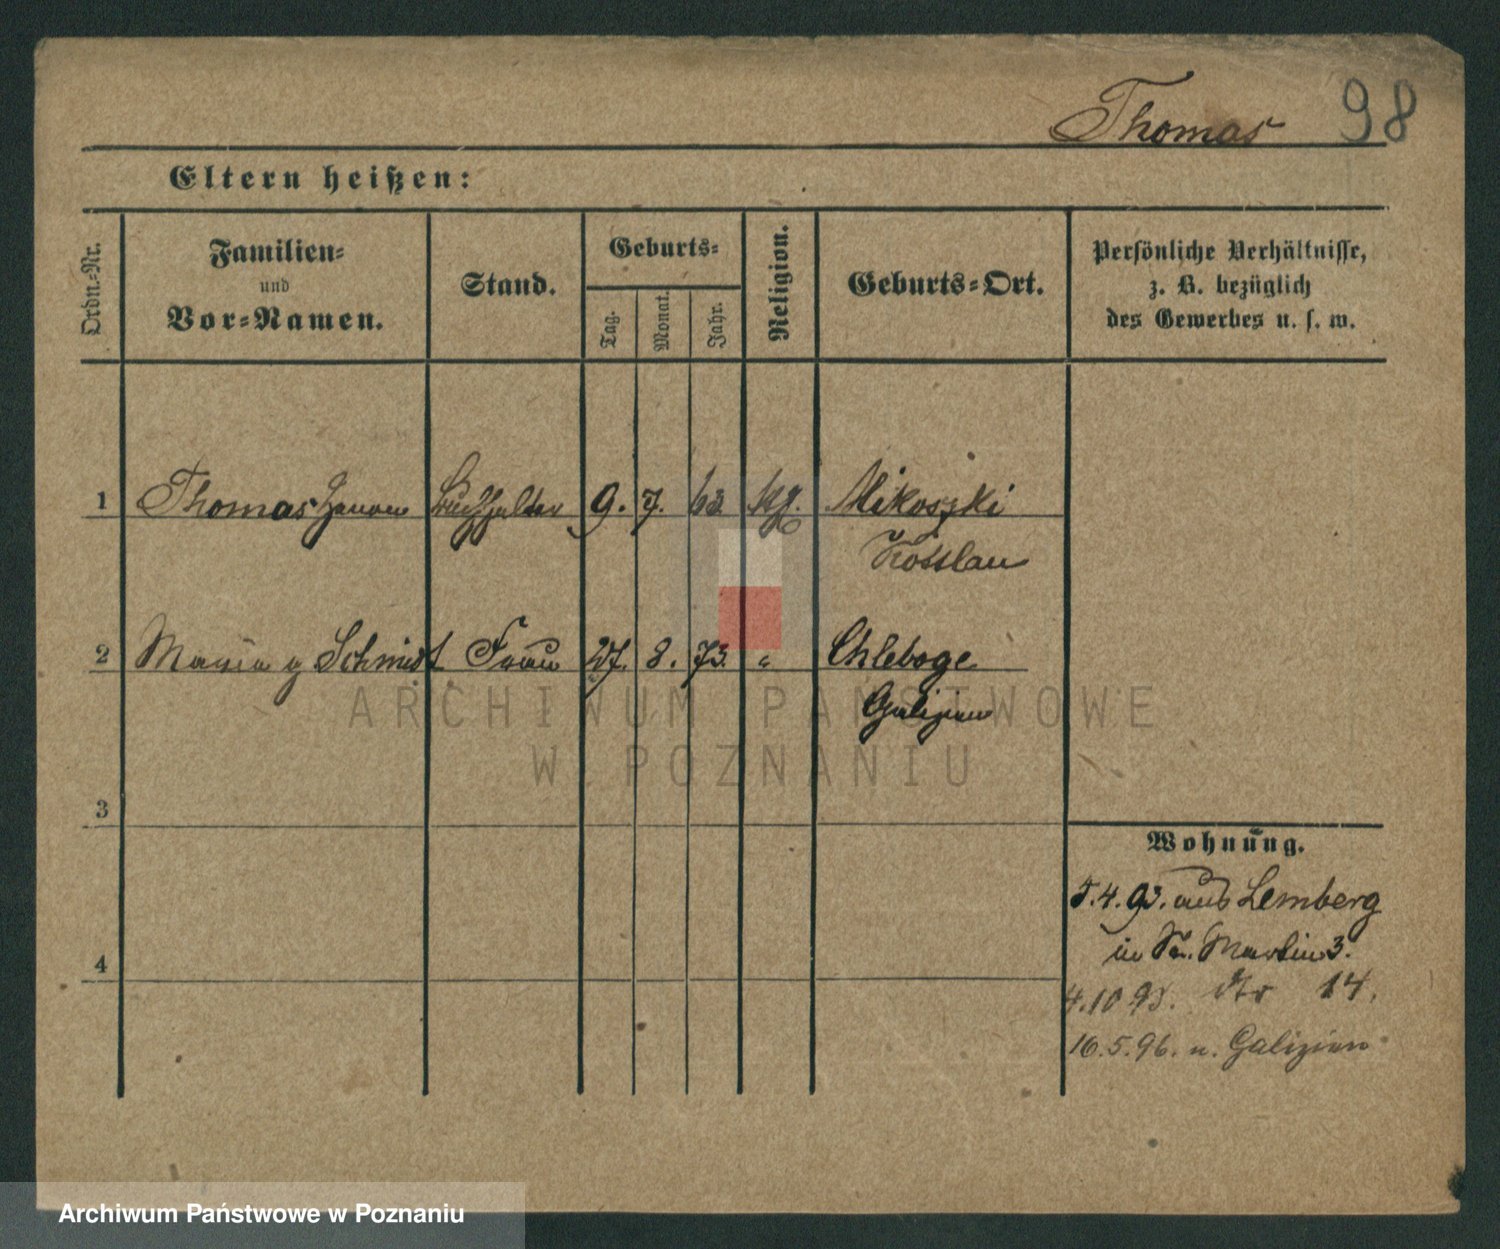 Thomas 98
Eltern heißen:
Ordn.-Nr.
Familien-
und
Vor-Namen.
Stand.
Geburts-
Tag.
Monat.
Jahr.
Religion.
Geburts-Ort.
Persönliche Verhältnisse,
z. B. bezüglich
des Gewerbes u. s. w.
1 Thomas Buchhalter 9. 7. 63 Mikoszki
Kosslau
2 Maria g Schmidt Frau 27. 8. 73. " Chleboge
Galizien
3
4
Wohnung.
5.4.93. aus Lemberg
in St. Martin 3.
4.10 93. 14.
16.5.96. n. Galizien
ARCHIWUM PAŃSTWOWE
W POZNANIU
Archiwum Państwowe w Poznaniu